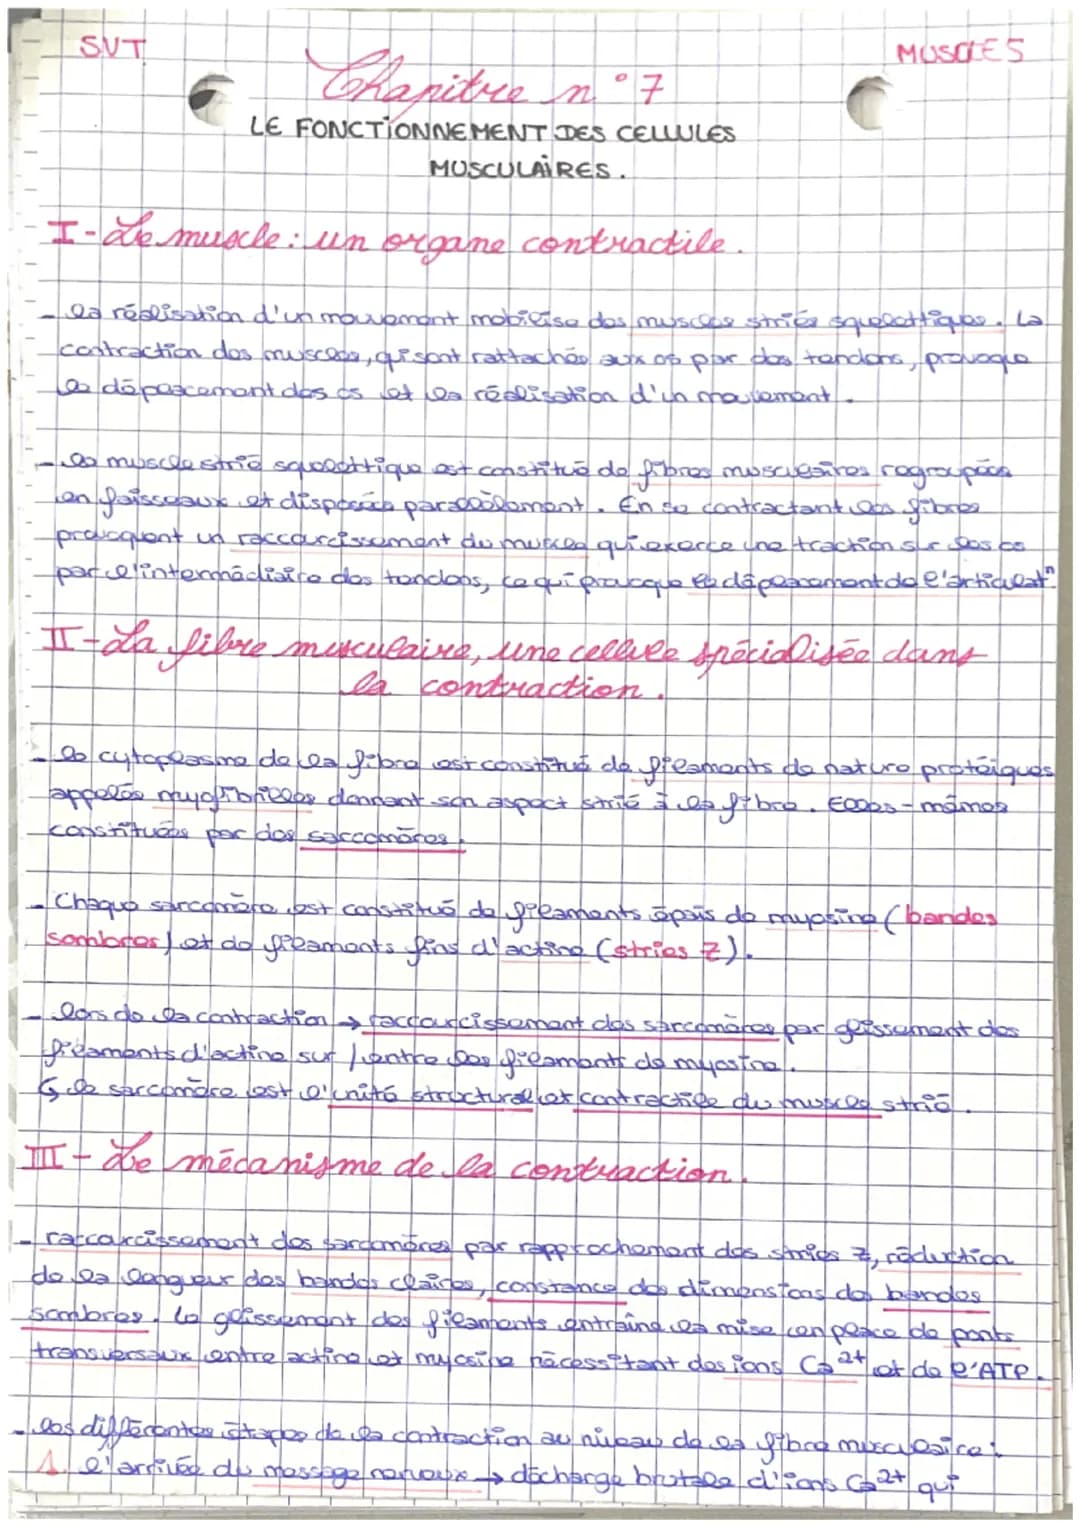 SVT
MUSCLES
Chapitre n°7
LE FONCTIONNEMENT DES CELLULES
MUSCULAIRES.
I - Le muscle : un organe contractile.
- la réalisation d'un mouvement mobilise des muscles striés squelettiques. La
contraction des muscles, qui sont rattachés aux os par des tendons, provoque
le déplacement des os et la réalisation d'un mouvement.
- le muscle strié squelettique est constitué de fibres musculaires regroupées
en faisceaux et disposées parallèlement. En se contractant les fibres
provoquent un raccourcissement du muscle qui exerce une traction sur les os
par l'intermédiaire des tendons, ce qui provoque le déplacement de l'articulatⁿ.
II - La fibre musculaire, une cellule spécialisée dans
la contraction.
- le cytoplasme de la fibre est constitué de filaments de nature protéiques
appelés myofibrilles donnant son aspect strié à la fibre. Elles-mêmes
constituées par des sarcomères.
- Chaque sarcomère est constitué de filaments épais de myosine (bandes
sombres) et de filaments fins d'actine (stries Z).
- lors de la contraction → raccourcissement des sarcomères par glissement des
filaments d'actine sur / entre les filaments de myosine.
↳ le sarcomère est l'unité structurale et contractile du muscle strié.
III - Le mécanisme de la contraction.
- raccourcissement des sarcomères par rapprochement des stries Z, réduction
de la longueur des bandes claires, constance des dimensions des bandes
sombres. Le glissement des filaments entraîne la mise en place de ponts
transversaux entre actine et myosine nécessitant des ions Ca²⁺ et de l'ATP.
- les différentes étapes de la contraction au niveau de la fibre musculaire :
1. l'arrivée du message nerveux → décharge brutale d'ions Ca²⁺ qui